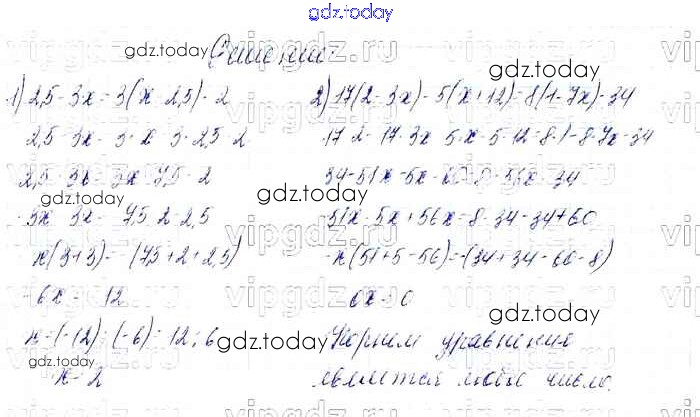 gdz.today
Решение
1) 2,5 - 3x = 3(x - 2,5) - 2
2,5 - 3x = 3 x 3 · 2,5 - 2
2,5 3x 3x 7,5 2
-3x 3x - 7,5 2 - 2,5
x(3+3) = -(7,5 + 2 + 2,5)
-6x = 12
x = (-12) : (-6) = 12 : 6
x = 2
2) 17(2 - 3x) - 5(x + 12) = 8(1 - 7x) - 34
17 · 2 - 17 · 3x 5 x - 5 · 12 = 8 · 1 - 8 · 7x - 34
34 - 51x - 5x - 8 56x 34
-51x - 5x + 56x = 8 - 34 - 34 + 60
-x(51 + 5 - 56) = -(34 + 34 - 60 - 8)
0x = 0
Корнем уравнения
является любое число.
gdz.today
gdz.today
gdz.today
gdz.today
gdz.today
gdz.today
gdz.today
gdz.today
vipgdz.ru